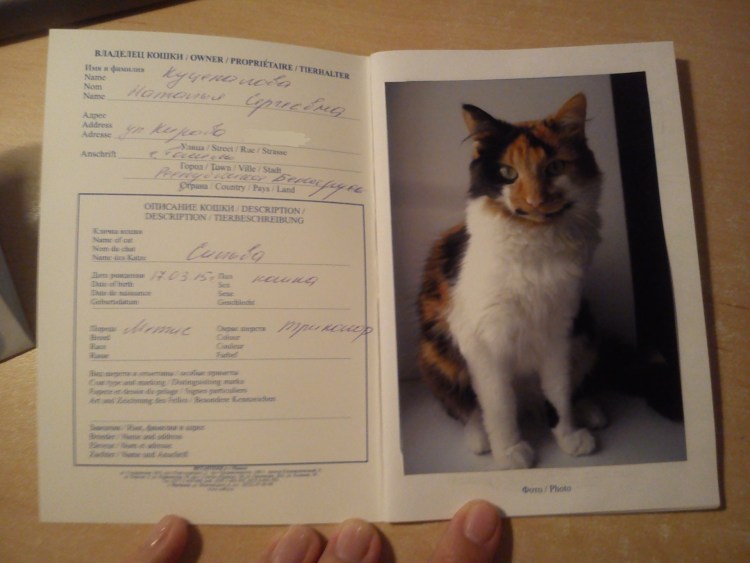 ВЛАДЕЛЕЦ КОШКИ / OWNER / PROPRIÉTAIRE / TIERHALTER
Имя и фамилия
Name
Nom
Name
Наталья Сергеевна
Адрес
Address
Adresse
ул Кирова
Улица / Street / Rue / Strasse
Anschrift
Город / Town / Ville / Stadt
Страна / Country / Pays / Land
ОПИСАНИЕ КОШКИ / DESCRIPTION /
DESCRIPTION / TIERBESCHREIBUNG
Кличка кошки
Name of cat
Nom du chat
Name des Katze
Дата рождения 17.03.15г Пол кошка
Date of birth Sex
Date de naissance Sexe
Geburtsdatum Geschlecht
Порода Метис Окрас шерсти триколор
Breed Colour
Race Couleur
Rasse Farbe
Вид шерсти и отметины / особые приметы
Coat type and marking / Distinguishing marks
Art und Zeichnung des Felles / Besondere Kennzeichen
Заводчик / Имя, фамилия и адрес
Breeder / Name and address
Eleveur / Nom et adresse
Zuchter / Name und Anschrift
Фото / Photo